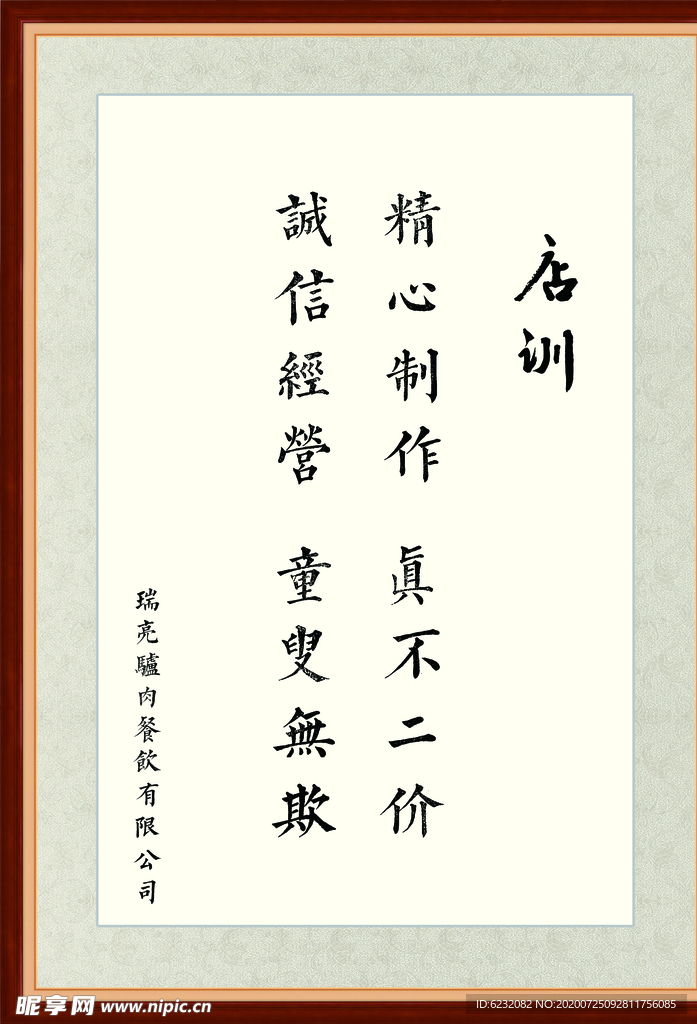 店训
精心制作 眞不二价
誠信經營 童叟無欺
瑞亮驢肉餐飲有限公司
昵享网 www.nipic.cn
ID:6232082 NO:20200725092811756085